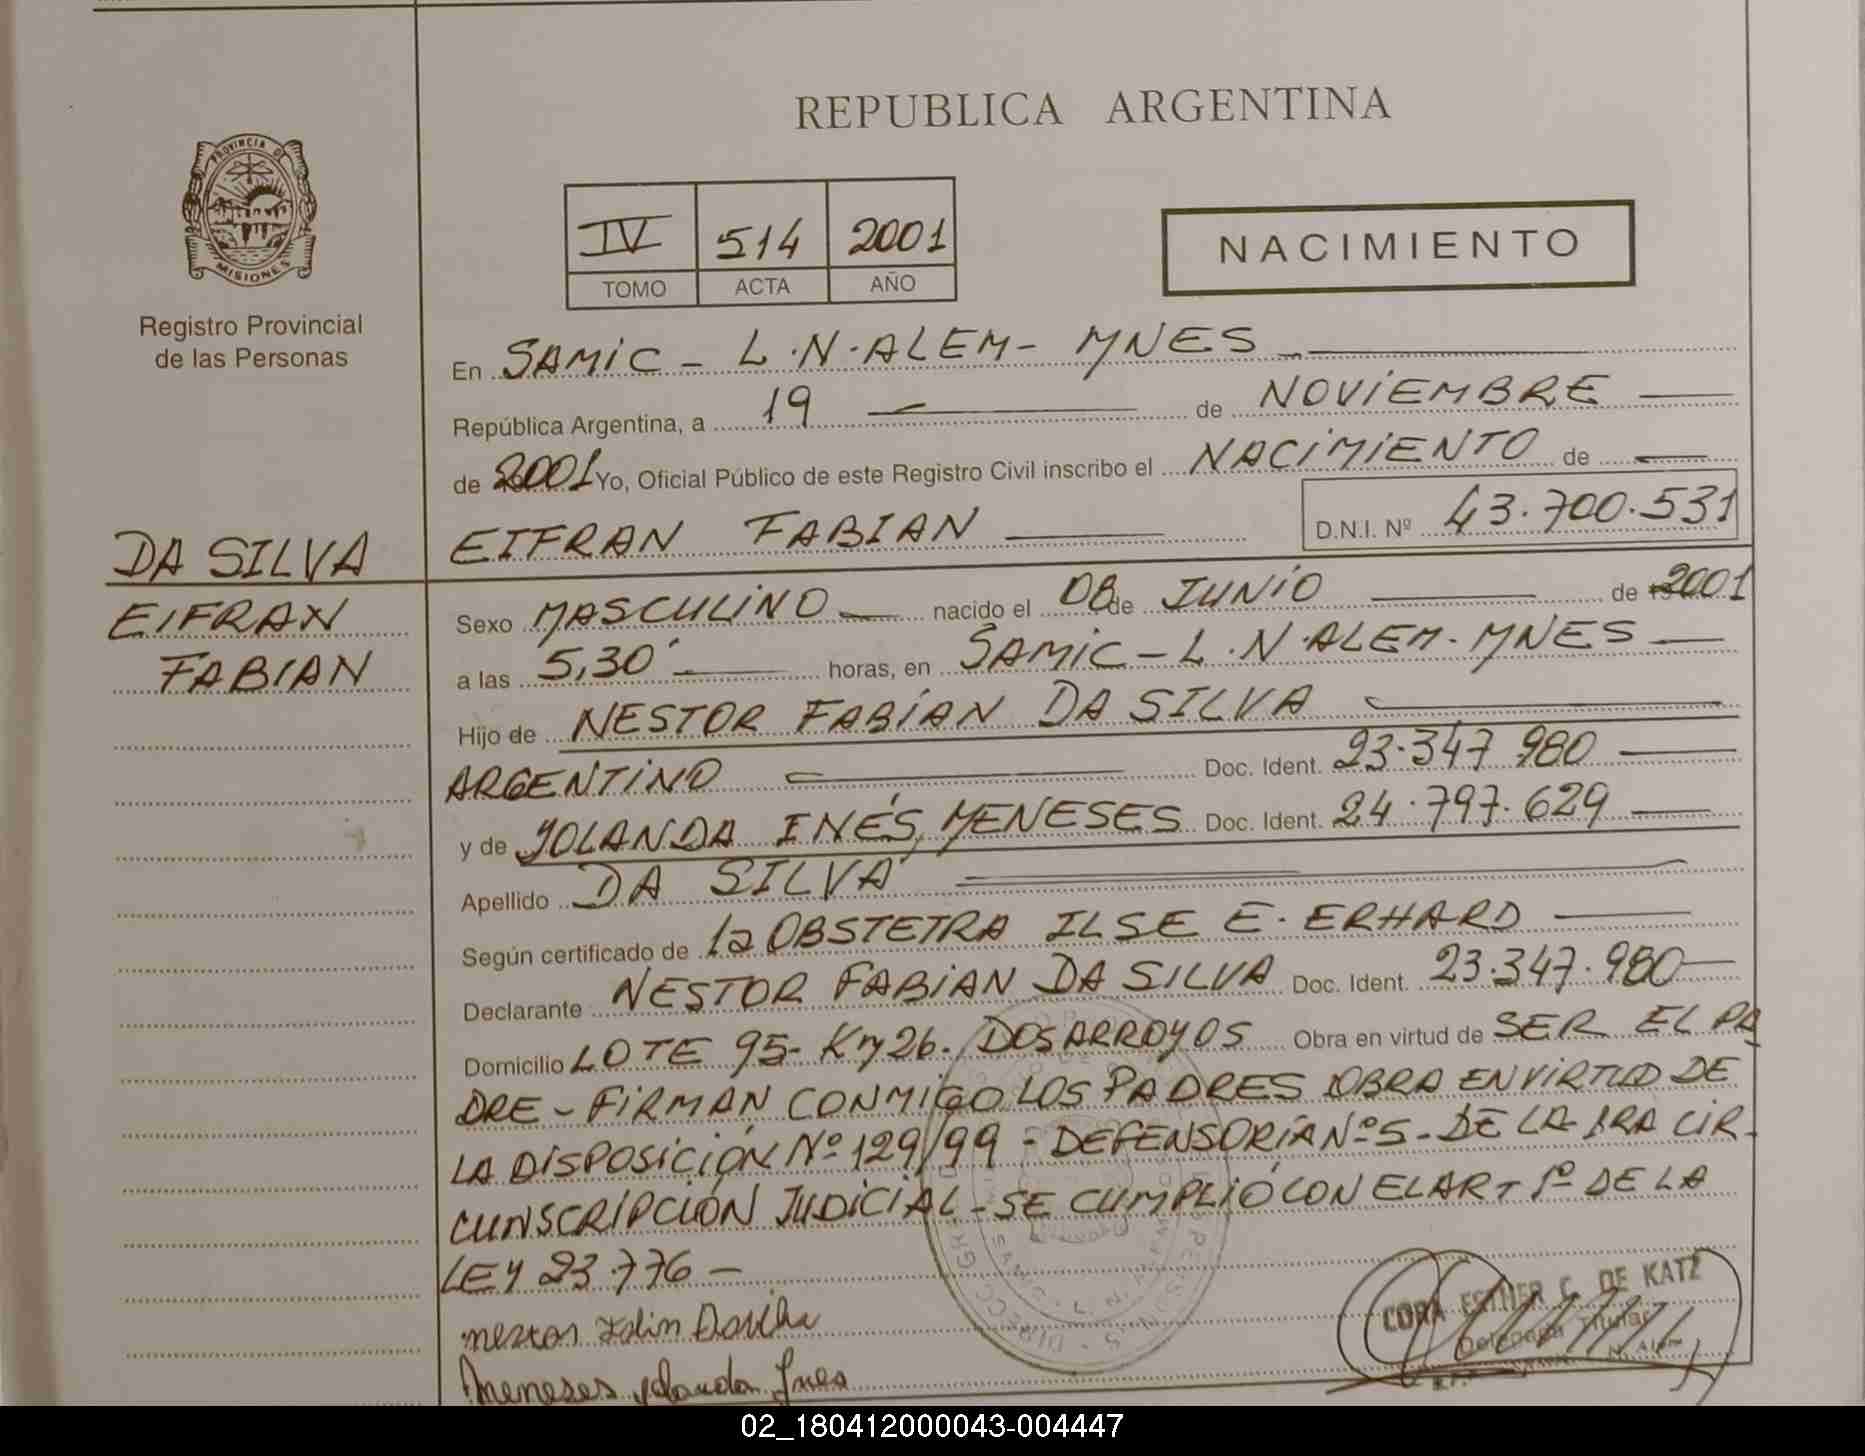 REPUBLICA ARGENTINA
PROVINCIA DE
MISIONES
Registro Provincial
de las Personas
IV 514 2001
TOMO ACTA AÑO
NACIMIENTO
En SAMIC - L.N.ALEM- MNES
República Argentina, a 19 de NOVIEMBRE
de 2001 Yo, Oficial Público de este Registro Civil inscribo el NACIMIENTO de
EIFRAN FABIAN D.N.I. Nº 43.700.531
DA SILVA
EIFRAN
FABIAN
Sexo MASCULINO nacido el 08 de JUNIO de 2001
a las 5,30' horas, en SAMIC - L.N.ALEM- MNES
Hijo de NESTOR FABIAN DA SILVA
ARGENTINO Doc. Ident. 23.347.980
y de YOLANDA INÉS, MENESES Doc. Ident. 24.797.629
Apellido DA SILVA
Según certificado de la OBSTETRA ILSE E. ERHARD
Declarante NESTOR FABIAN DA SILVA Doc. Ident. 23.347.980
Domicilio LOTE 95- Km 26. DOS ARROYOS Obra en virtud de SER EL PA
DRE - FIRMAN CONMIGO LOS PADRES OBRA EN VIRTUD DE
LA DISPOSICIÓN Nº 129/99 - DEFENSORÍA Nº 5 - DE LA 1RA CIR-
CUNSCRIPCIÓN JUDICIAL - SE CUMPLIÓ CON EL ART 1º DE LA
LEY 23.776 -
CORA ESTHER C. DE KATZ
Delegada Titular
Meneses Yolanda Ines
02_180412000043-004447